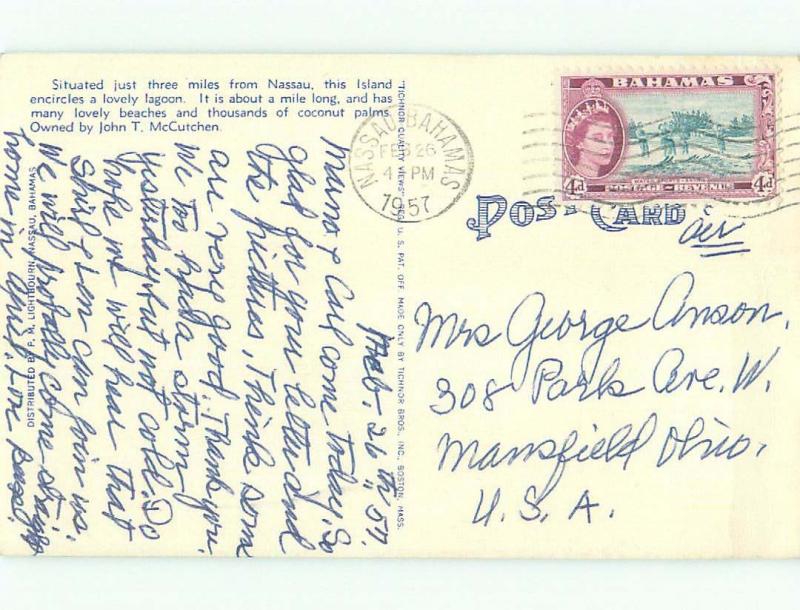 Situated just three miles from Nassau, this Island
encircles a lovely lagoon. It is about a mile long, and has
many lovely beaches and thousands of coconut palms.
Owned by John T. McCutchen.
DISTRIBUTED BY P. M. LIGHTBOURN, NASSAU, BAHAMAS
"TICHNOR QUALITY VIEWS" REG. U. S. PAT. OFF. MADE ONLY BY TICHNOR BROS., INC., BOSTON, MASS.
NASSAU BAHAMAS
FEB 26
PM
1957
BAHAMAS
4d 4d
POSTAGE & REVENUE
POST CARD
air
Mrs George Anson.
308 Park Ave. W.
Mansfield Ohio.
U. S. A.
Feb- 26th 57.
& Carl come today. So
glad for your letter and
the pictures. I think some
are very good. Thank you.
We too had a storm
yesterday but not cold. Do
hope we will hear that
Shirl & Len can join us.
We will probably come straight
home in April.